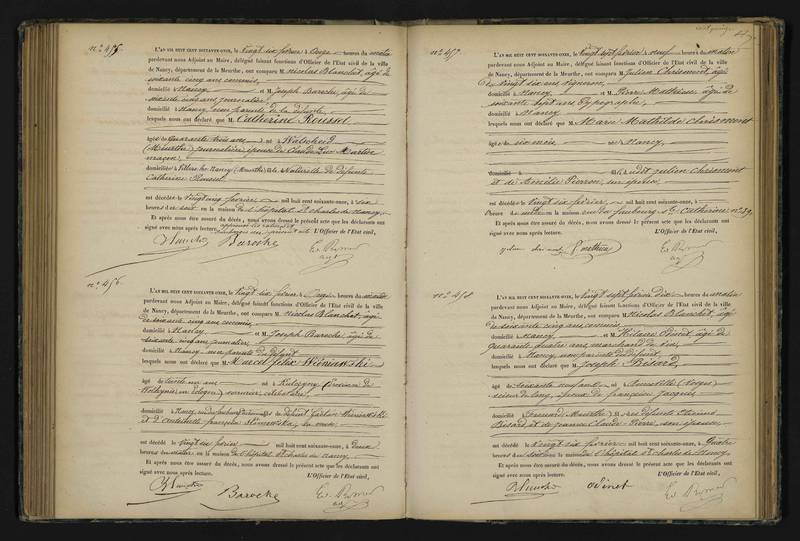 n.° 455.
L'AN MIL HUIT CENT SOIXANTE-ONZE, le vingt six février à onze heures du matin
pardevant nous Adjoint au Maire, délégué faisant fonctions d'Officier de l'Etat civil de la ville
de Nancy, département de la Meurthe, ont comparu M. Nicolas Blanchet, âgé de
soixante cinq ans commis,
domicilié à Nancy et M. Joseph Baroche, âgé de
soixante cinq ans journalier,
domicilié à Nancy, non parents de la défunte
lesquels nous ont déclaré que M. Catherine Roussel
âgée de quarante trois ans née à Walscheid
(Meurthe) journalière, épouse de Claude Luc
maçon,
domiciliée à Villers les Nancy (Meurthe) fille Naturelle de défunte
Catherine Roussel
est décédée le vingt cinq février mil huit cent soixante-onze, à six
heures du soir en la maison de l'hôpital St Charles de Nancy.
Et après nous être assuré du décès, nous avons dressé le présent acte que les déclarants ont
signé avec nous après lecture.
L'Officier de l'Etat civil,
Baroche
n.° 456.
L'AN MIL HUIT CENT SOIXANTE-ONZE, le vingt six février à onze heures du matin
pardevant nous Adjoint au Maire, délégué faisant fonctions d'Officier de l'Etat civil de la ville
de Nancy, département de la Meurthe, ont comparu M. Nicolas Blanchet, âgé
de soixante cinq ans commis,
domicilié à Nancy et M. Joseph Baroche âgé de
soixante cinq ans journalier
domicilié à Nancy non parents du défunt
lesquels nous ont déclaré que M. Marcel Félix Wiéniawski
âgé de trente un ans né à
Wolhynie en Pologne) ouvrier, célibataire,
domicilié à Nancy, fils de défunt
et d'
est décédé le vingt six février mil huit cent soixante-onze, à deux
heures du matin en la maison de l'hôpital St Charles de Nancy.
Et après nous être assuré du décès, nous avons dressé le présent acte que les déclarants ont
signé avec nous après lecture.
L'Officier de l'Etat civil,
Baroche
n.° 457.
L'AN MIL HUIT CENT SOIXANTE-ONZE, le vingt sept février à neuf heures du matin
pardevant nous Adjoint au Maire, délégué faisant fonctions d'Officier de l'Etat civil de la ville
de Nancy, département de la Meurthe, ont comparu M. Julien Chrisment, âgé
de vingt six ans vigneron,
domicilié à Nancy et M. Pierre Mathieu, âgé de
soixante sept ans typographe,
domicilié à Nancy
lesquels nous ont déclaré que M. Marie Mathilde Chrisment
âgée de six mois née à Nancy,
domiciliée à fille de dit Julien Chrisment
et de Amélie Pierron son épouse,
est décédée le vingt six février, mil huit cent soixante-onze, à
heure de en la maison rue du faubourg Ste Catherine n.° 39.
Et après nous être assuré du décès, nous avons dressé le présent acte que les déclarants ont
signé avec nous après lecture.
L'Officier de l'Etat civil,
n.° 458
L'AN MIL HUIT CENT SOIXANTE-ONZE, le vingt sept février dix heures du matin
pardevant nous Adjoint au Maire, délégué faisant fonctions d'Officier de l'Etat civil de la ville
de Nancy, département de la Meurthe, ont comparu M. Nicolas Blanchet, âgé
de soixante cinq ans commis
domicilié à Nancy et M. Hilaire Odinet âgé de
quarante quatre ans marchand de vin,
domicilié à Nancy non parents du défunt,
lesquels nous ont déclaré que M. Joseph Bésard,
âgé de soixante neuf ans né à (Vosges)
scieur de long, époux de Françoise Jacques
domicilié à fils de défunts Etienne
Bésard et de Jeanne Claude Pierre, son épouse,
est décédé le vingt six février mil huit cent soixante-onze, à quatre
heures du soir en la maison de l'hôpital St Charles de Nancy.
Et après nous être assuré du décès, nous avons dressé le présent acte que les déclarants ont
signé avec nous après lecture.
L'Officier de l'Etat civil,
Blanchet Odinet